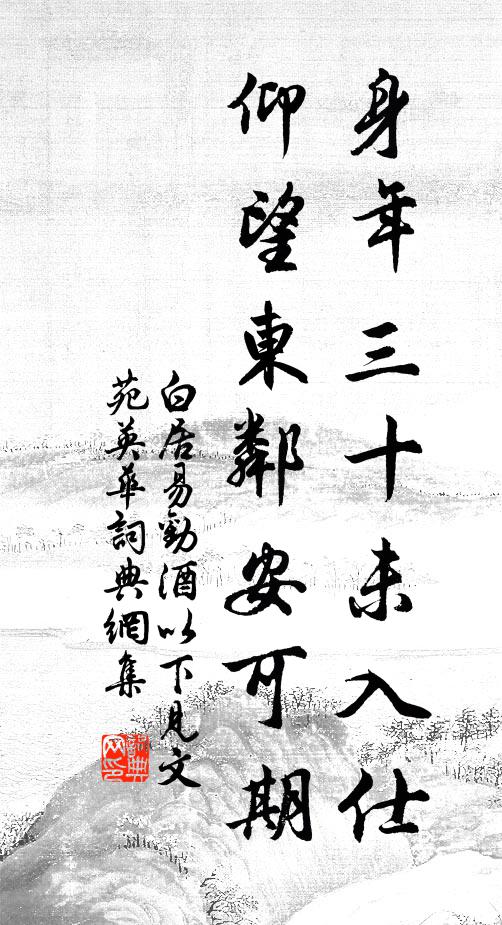 身年三十未入仕
仰望東鄰安可期
白居易勸酒以下見文
苑英華詞典網集
詞典网印